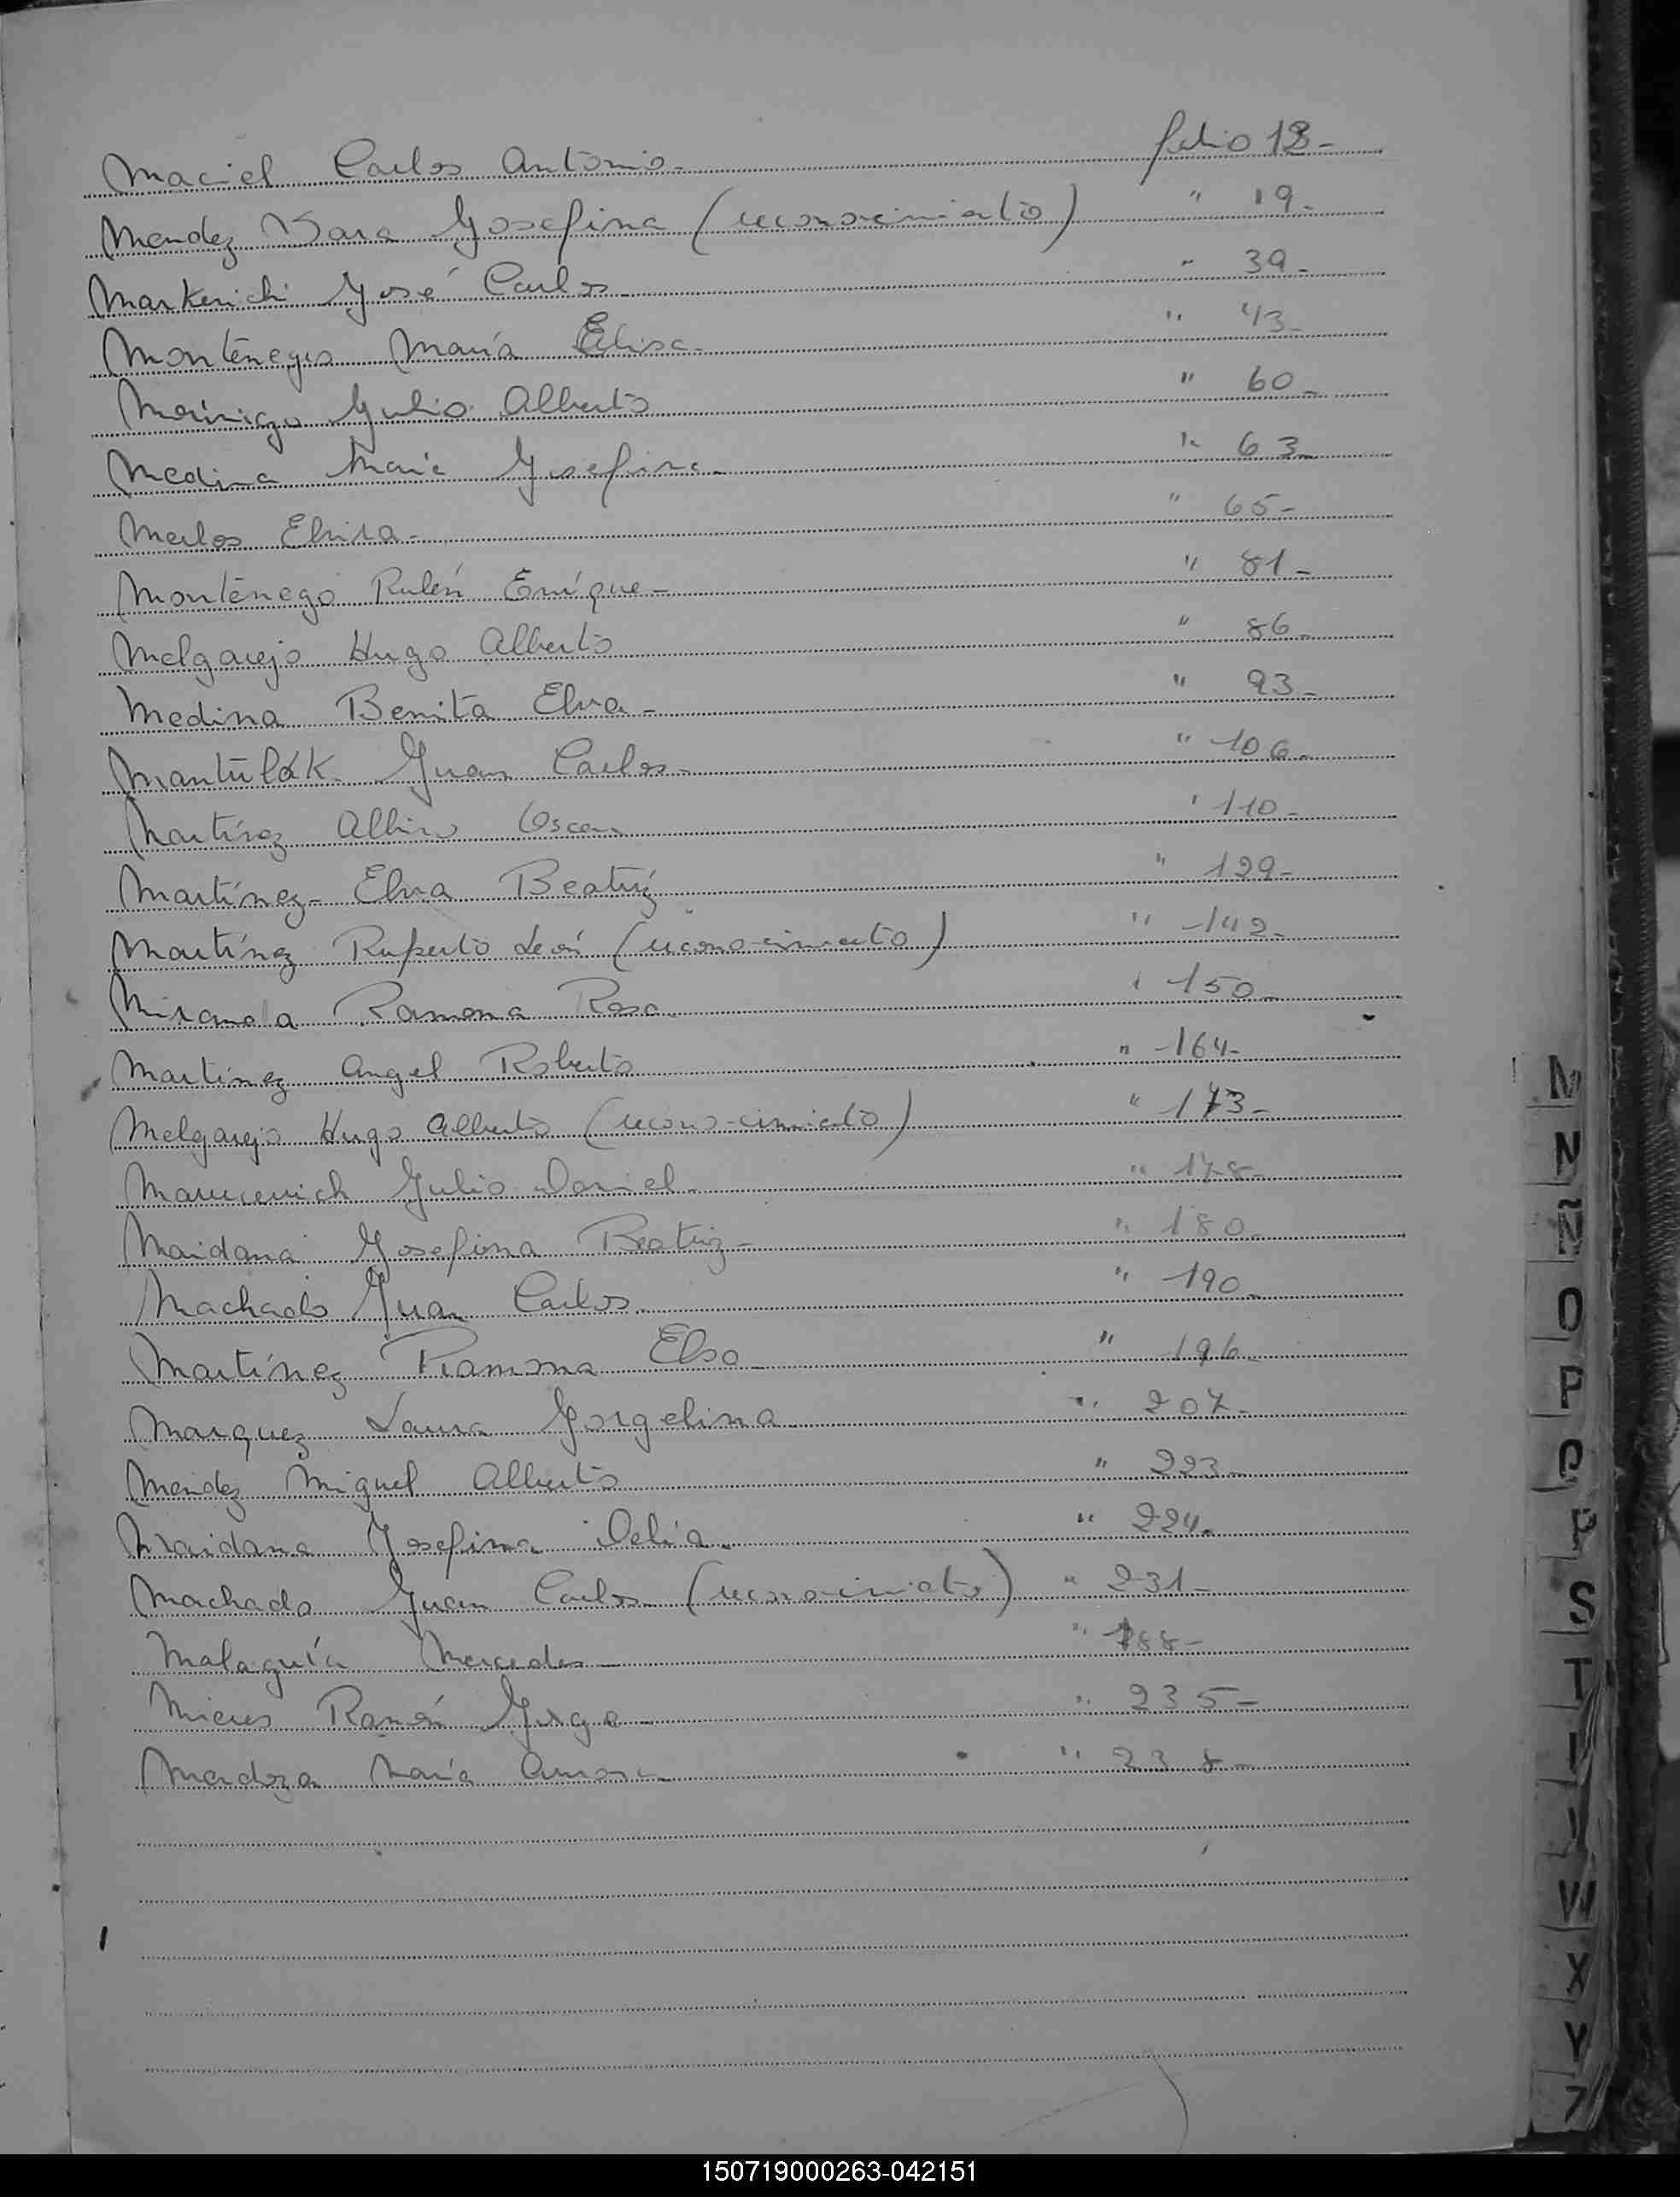 Maciel Carlos Antonio- folio 13-
Mendez Sara Josefina (reconocimiento) " 19-
Markevich José Carlos " 39-
Montenegro María Elisa- " 43-
Meiriñgo Julio Alberto " 60-
Medina María Josefina- " 63-
Merlos Elvira- " 65-
Montenego Rubén Enríque- " 81-
Melgarejo Hugo Alberto " 86-
Medina Benita Elva- " 93-
Mantulák Juan Carlos- " 106-
Martínez Albino Oscar " 110-
Martínez- Elva Beatríz " 129-
Martínez Ruperto León (reconocimiento) " 142-
Miranda Ramona Rosa- " 150-
Martínez Angel Roberto " 164-
Melgarejo Hugo Alberto (reconocimiento) " 173-
Marucevich Julio Daniel- " 178-
Maidana Josefina Beatriz- " 180-
Machado Juan Carlos- " 190-
Martínez Ramona Elsa- " 196-
Marquez Laura Jorgelina " 207-
Mendez Miguel Alberto " 223-
Maidana Josefina Delia- " 224-
Machado Juan Carlos- (reconocimiento) " 231-
Malaguía Mercedes- " 188-
Mieres Ramón Jorge- " 235-
Mendoza María " 238-
M
N
Ñ
O
P
Q
R
S
T
U
V
W
X
Y
Z
150719000263-042151